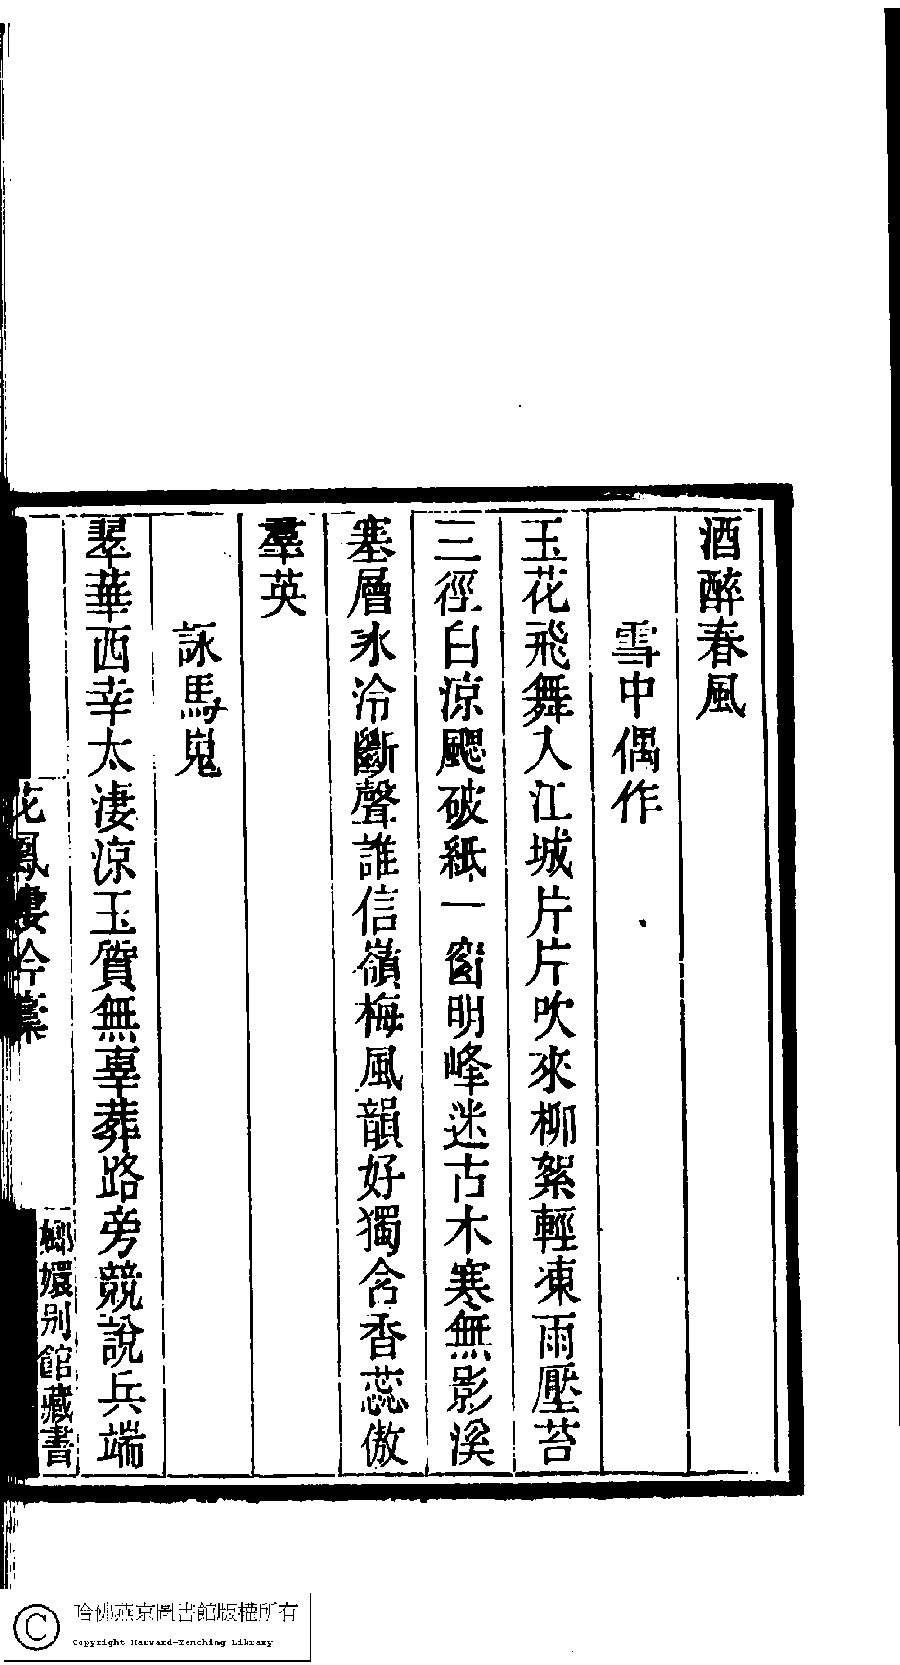 酒醉春風
雪中偶作
玉花飛舞入江城片片吹來柳絮輕凍雨壓苔
三徑白涼飂破紙一窗明峰迷古木寒無影溪
塞層氷冷斷聲誰信嶺梅風韻好獨含香蕊傲
羣英
詠馬嵬
翠華西幸太淒涼玉質無辜葬路旁競說兵端
花鳳樓吟稾
嫏嬛別館藏書
哈佛燕京圖書館版權所有
Copyright Harvard-Yenching Library